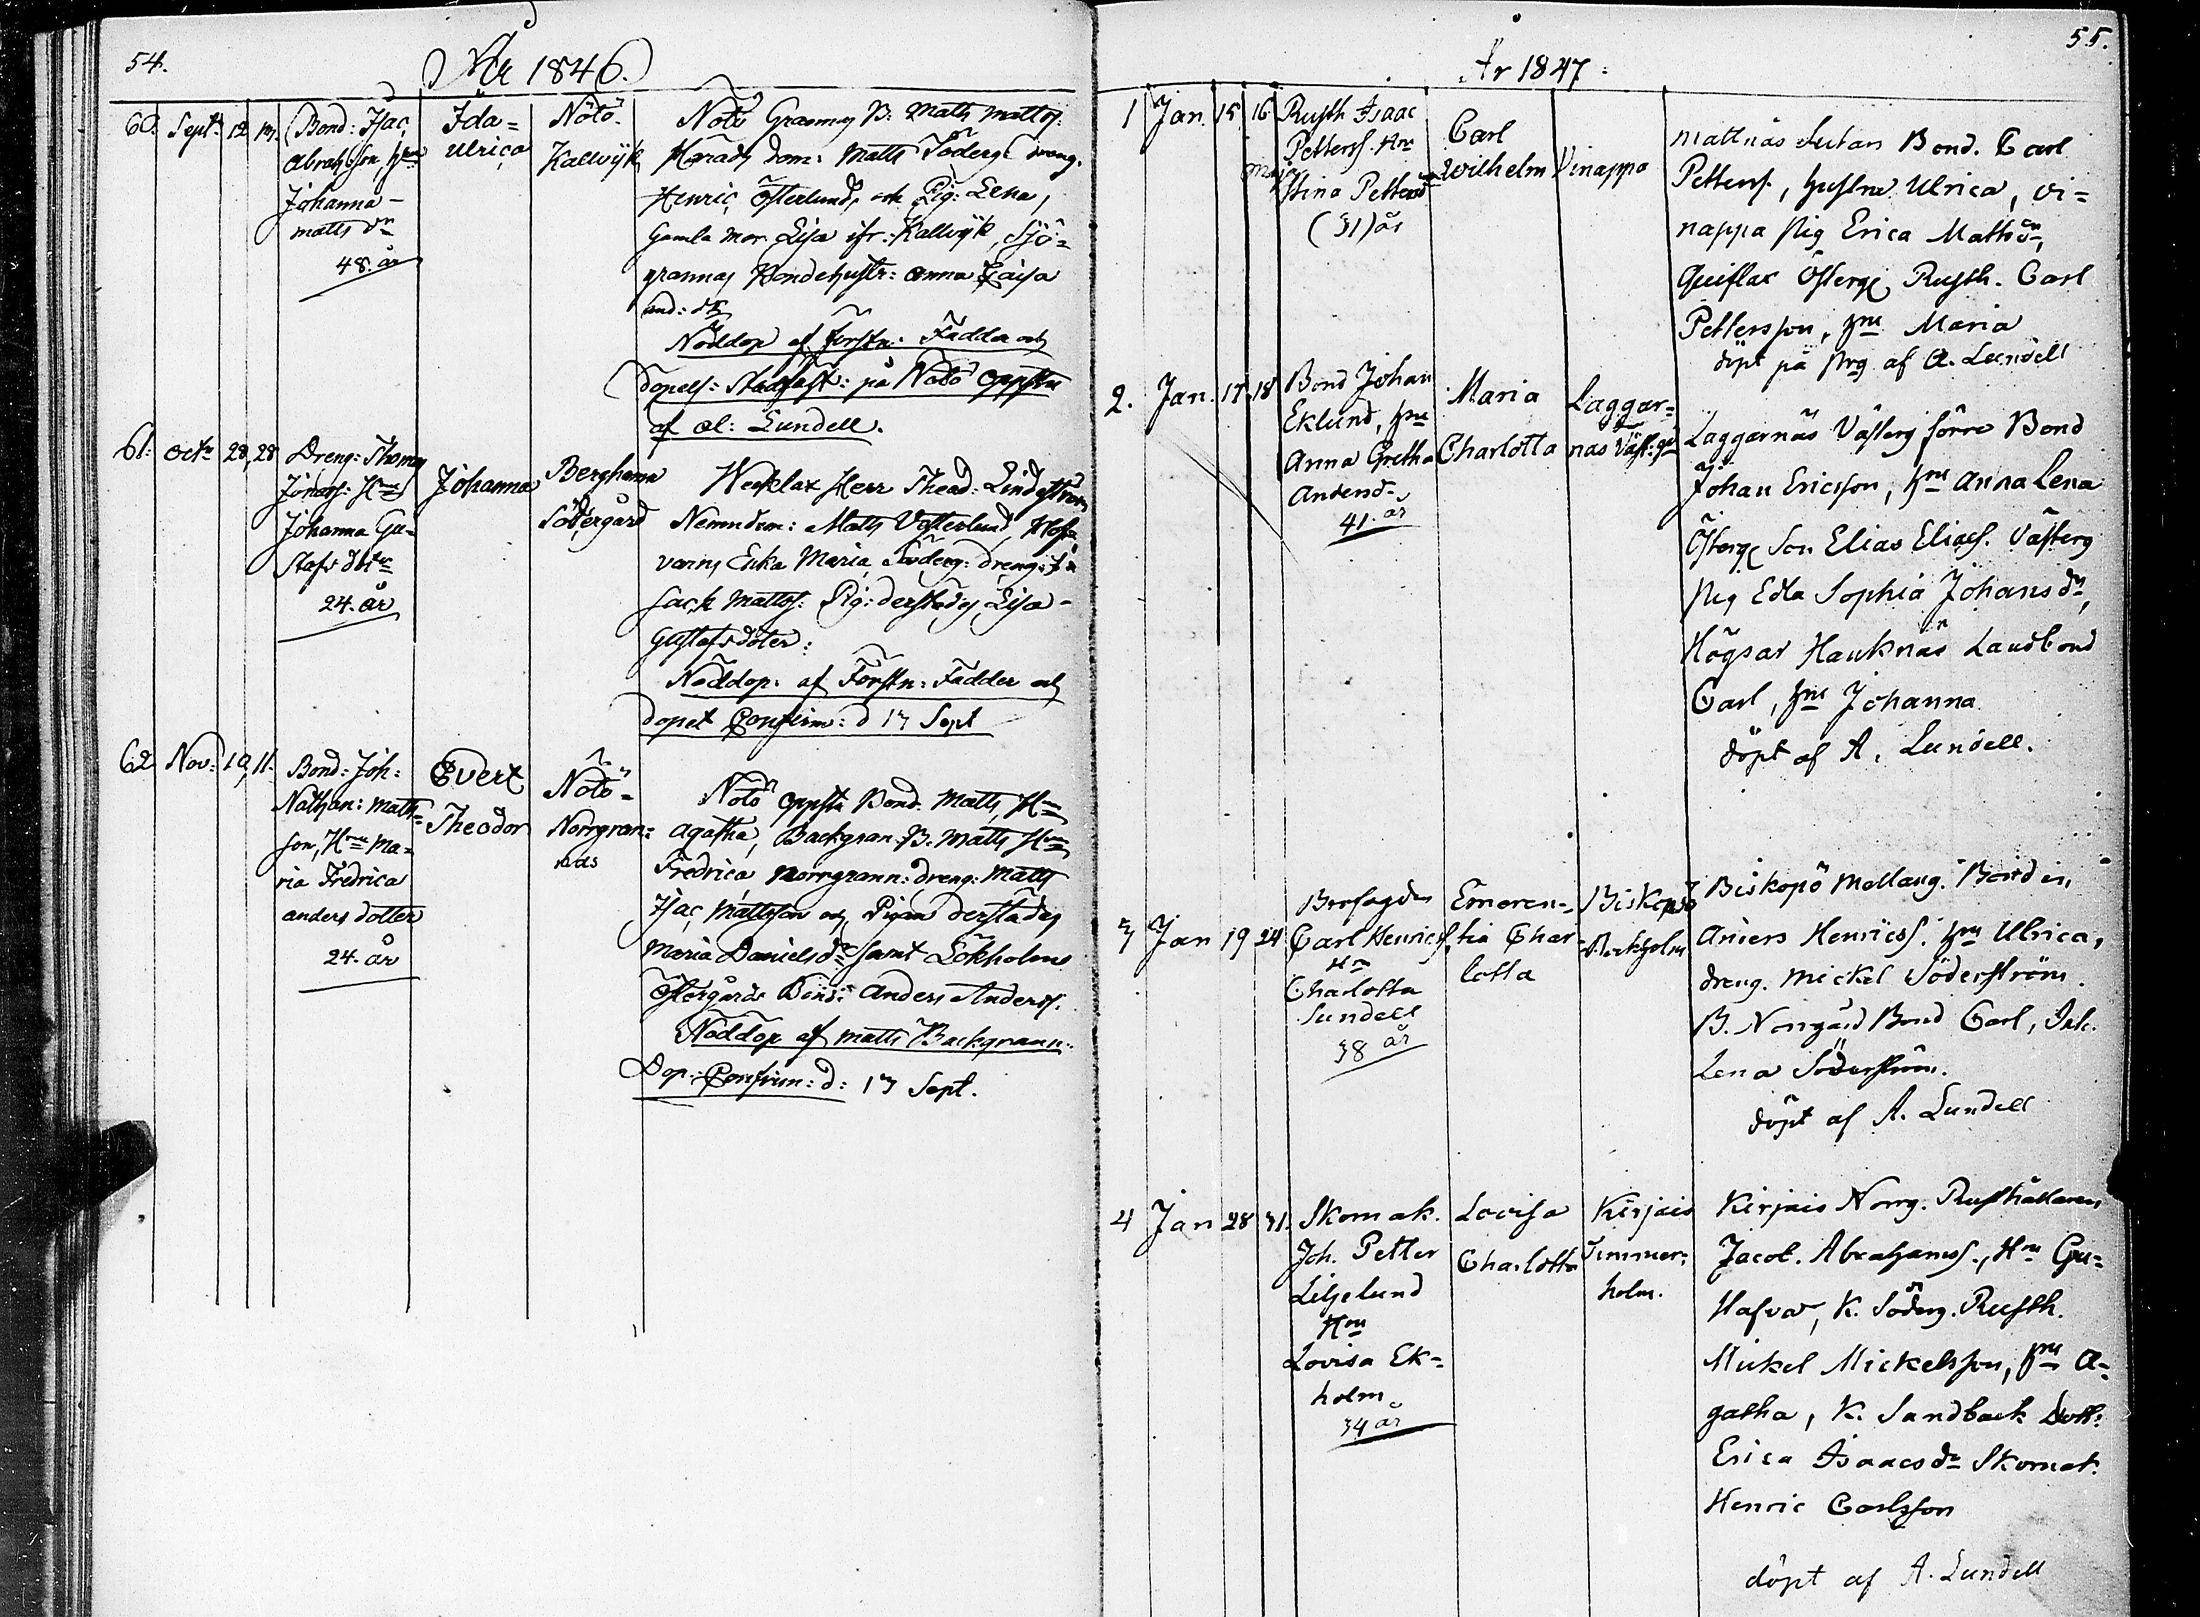 54.
År 1846.
60. Sept. 12 13. Bond: Isac
Abrahsson, Hru
Johanna
matts dr
48. år
Ida=
Ulrica
Nötö
Kallvijk
Nötö Grannas B. Matts Mattss:
Härads dom: Matts Söderg: dreng.
Henric Österlund, och Pig: Lena,
Gamla mor Lisa ifr. Kallvijk, Sjö=
grannas Bondehustr: Anna Caisa
And: dr
Nöddop af förstn: Fadder och
dopets: stadfäst: på Nötö Oppstu
af A: Lundell.
61. Octr 28, 28 Dreng: Thomas
Jonass: Hru
Johanna Gu-
stafs dotr
24. år
Johanna
Berghamn
Södergård
Herr Thead: Lindström
Nemndem: Matts Vesterlund,
Enka Maria, Söderg: dreng: I=
sack Mattss: Pig: derstades Lisa-
Gustafsdoter:
Nöddop: af Förstn: Fadder och
dopet Confirm: d 13 Sept
62 Nov: 10, 11. Bond: Joh:
Nathan: Matts=
son, Hru Ma=
ria Fredrica
anders dotter
24. år
Evert
Theodor
Nötö=
Norrgran=
nas
Nötö Oppstu Bond. Matts, Hru
Agatha, Backgran. B. Matts Hru
Fredrica Norrgrann: dreng: Matts
Isac Mattsson och Pigan derstades
Maria Daniels dr samt Lökholms
Östergårds Bond: Anders Anderss.
Nöddop af Matts Backgrann:
Dop: Confirm: d: 13 Sept.
55.
År 1847:
1 Jan. 15. 16. Rusth Isaac
Petterss. Hru
Stina Pettersdr
(31) år
Carl
Wilhelm
Vinappa
Mattnäs Sutars Bond. Carl
Petterss., hustru Ulrica, Vi=
nappa Pig Erica Mattsdr,
Österg. Rusth. Carl
Pettersson, Hru Maria
döpt på Prg af A. Lundell
2. Jan. 17. 18 Bond Johan
Eklund, Hru
Anna Gretha
Andersd.
41. år
Maria
Charlotta
Laggar=
näs Väst.gd
Laggarnäs Vesterg förre Bond
Johan Ericsson, Hru Anna Lena
Österg Son Elias Eliass. Västerg
Pig Edla Sophia Johans dr,
Högsar Hauknäs Landbond
Carl, Hru Johanna
döpt af A. Lundell.
3 Jan 19 24
Carl Henricss.
Hru
Charlotta
Sundell
38 år
Emeren=
tia Char
lotta
Biskopsö
Biskopö Mellang. Bonden,
Anders Henricss. Hru Ulrica,
dreng. Mickel Söderström.
B. Norrgård Bond Carl, Inh.
Lena Söderström.
döpt af A. Lundell
4 Jan 28 31. Skomak.
Joh. Petter
Liljelund
Hru
Lovisa Ek=
holm
34 år
Lovisa
Charlotta
Kirjais
Timmer=
holm.
Kirjais Norrg. Rusthållaren
Jacob. Abrahamss., Hru Gu=
stafva, K. Söderg. Rusth.
Mickel Mickelsson, Hru A=
gatha, K. Sandback Dott:
Erica Isaacs dr Skomak.
Henric Carlsson
döpt af A. Lundell